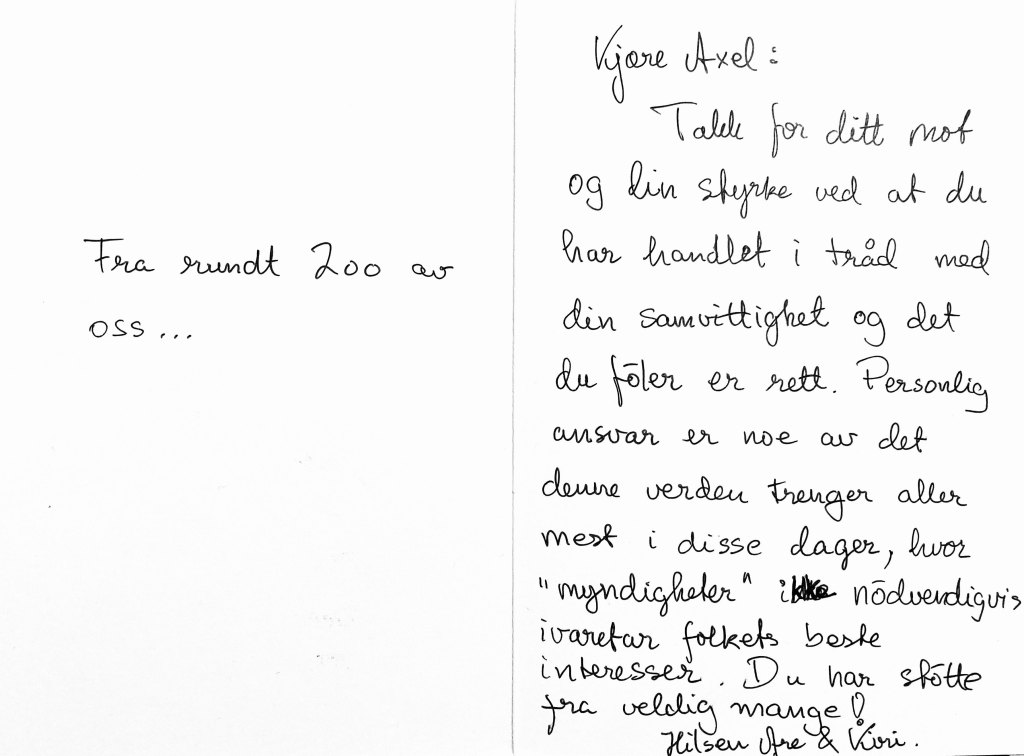 Fra rundt 200 av
oss...
Kjære Axel:
Takk for ditt mot
og din styrke ved at du
har handlet i tråd med
din samvittighet og det
du föler er rett. Personlig
ansvar er noe av det
denne verden trenger aller
mest i disse dager, hvor
"myndigheter" ikke nödvendigvis
ivaretar folkets beste
interesser. Du har stötte
fra veldig mange!
Hilsen Are &